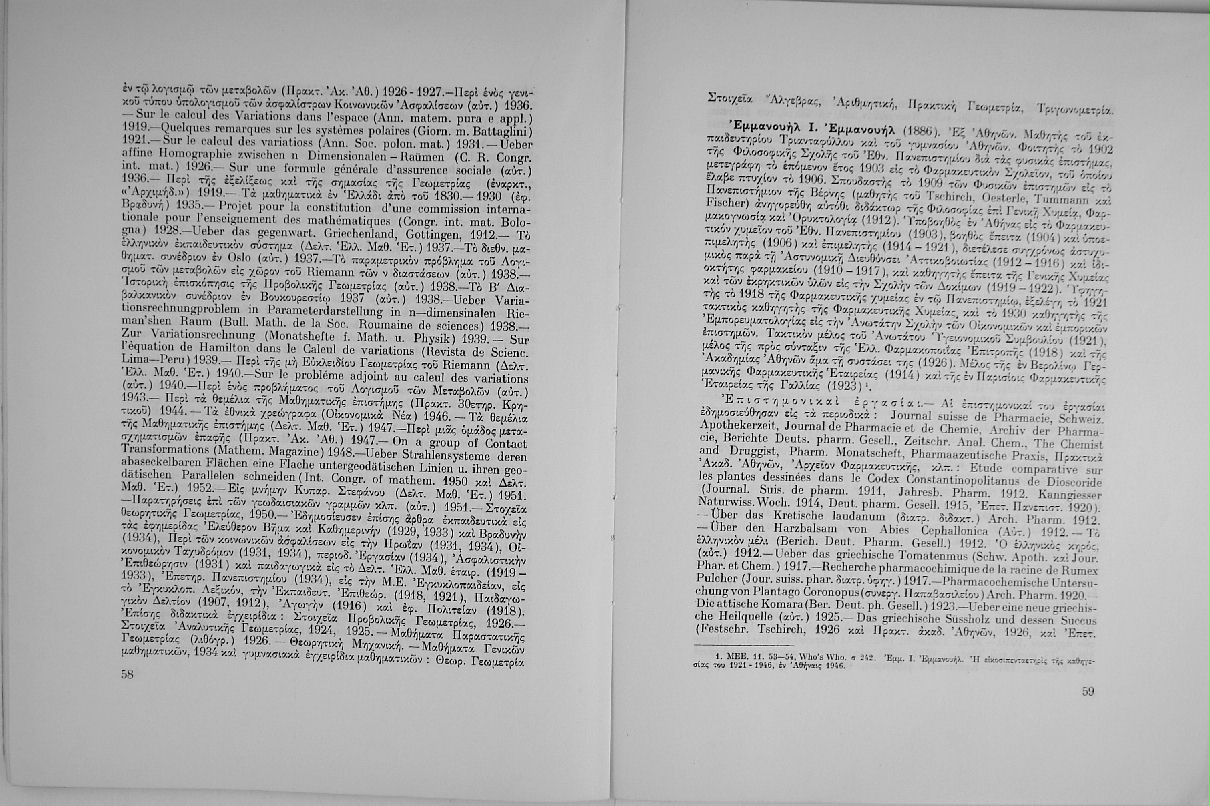 ἐν τῷ λογισμῷ τῶν μεταβολῶν (Πρακτ. Ἀκ. Ἀθ.) 1926 - 1927.—Περὶ ἑνὸς γενι-
κοῦ τύπου ὑπολογισμοῦ τῶν ἀσφαλίστρων Κοινωνικῶν Ἀσφαλίσεων (αὐτ.) 1936.
— Sur le calcul des Variations dans l'espace (Ann. matem. pura e appl.)
1919.—Quelques remarques sur les systèmes polaires (Giorn. m. Battaglini)
1921.— Sur le calcul des variatioss (Ann. Soc. polon. mat.) 1931.—Ueber
affine Homographie zwischen n Dimensionalen — Raümen (C. R. Congr.
int. mat.) 1926.— Sur une formule générale d'assurence sociale (αὐτ.)
1936.— Περὶ τῆς ἐξελίξεως καὶ τῆς σημασίας τῆς Γεωμετρίας (ἐναρκτ.,
«Ἀρχιμήδ.») 1919.— Τὰ μαθηματικὰ ἐν Ἑλλάδι ἀπὸ τοῦ 1830.— 1930 (ἐφ.
Βραδυνή) 1935.— Projet pour la constitution d'une commission interna-
tionale pour l'enseignement des mathématiques (Congr. int. mat. Bolo-
gna) 1928.—Ueber das gegenwart. Griechenland, Gottingen, 1912.— Τὸ
ἑλληνικὸν ἐκπαιδευτικὸν σύστημα (Δελτ. Ἑλλ. Μαθ. Ἑτ.) 1937.—Τὸ διεθν. μα-
θηματ. συνέδριον ἐν Oslo (αὐτ.) 1937.—Τὸ παραμετρικὸν πρόβλημα τοῦ Λογι-
σμοῦ τῶν μεταβολῶν εἰς χῶρον τοῦ Riemann τῶν ν διαστάσεων (αὐτ.) 1938.—
Ἱστορικὴ ἐπισκόπησις τῆς Προβολικῆς Γεωμετρίας (αὐτ.) 1938.—Τὸ Β' Δια-
βαλκανικὸν συνέδριον ἐν Βουκουρεστίῳ 1937 (αὐτ.) 1938.—Ueber Varia-
tionsrechnungproblem in Parameterdarstellung in n—dimensinalen Rie-
man'shen Raum (Bull. Math. de la Soc. Roumaine de sciences) 1938.—
Zur Variationsrechnung (Monatshefte f. Math. u. Physik) 1939. — Sur
l'équation de Hamilton dans le Calcul de variations (Revista de Scienc.
Lima—Peru) 1939.— Περὶ τῆς μὴ Εὐκλειδίου Γεωμετρίας τοῦ Riemann (Δελτ.
Ἑλλ. Μαθ. Ἑτ.) 1940.—Sur le problème adjoint au calcul des variations
(αὐτ.) 1940.—Περὶ ἑνὸς προβλήματος τοῦ Λογισμοῦ τῶν Μεταβολῶν (αὐτ.)
1943.— Περὶ τὰ θεμέλια τῆς Μαθηματικῆς ἐπιστήμης (Πρακτ. 30ετηρ. Κρη-
τικοῦ) 1944. — Τὰ ἐθνικὰ χρεώγραφα (Οἰκονομικὰ Νέα) 1946. — Τὰ θεμέλια
τῆς Μαθηματικῆς ἐπιστήμης (Δελτ. Μαθ. Ἑτ.) 1947.—Περὶ μιᾶς ὁμάδος μετα-
σχηματισμῶν ἐπαφῆς (Πρακτ. Ἀκ. Ἀθ.) 1947.— On a group of Contact
Transformations (Mathem. Magazine) 1948.—Ueber Strahlensysteme deren
abaseckelbaren Flächen eine Flache untergeodätischen Linien u. ihren geo-
dätischen Parallelen schneiden (Int. Congr. of mathem. 1950 καὶ Δελτ.
Μαθ. Ἑτ.) 1952.—Εἰς μνήμην Κυπαρ. Στεφάνου (Δελτ. Μαθ. Ἑτ.) 1951.
—Παρατηρήσεις ἐπὶ τῶν γεωδαισιακῶν γραμμῶν κλπ. (αὐτ.) 1951.—Στοιχεῖα
θεωρητικῆς Γεωμετρίας, 1950.—Ἐδημοσίευσεν ἐπίσης ἄρθρα ἐκπαιδευτικὰ εἰς
τὰς ἐφημερίδας Ἐλεύθερον Βῆμα καὶ Καθημερινὴν (1929, 1933) καὶ Βραδυνὴν
(1934), Περὶ τῶν κοινωνικῶν ἀσφαλίσεων εἰς τὴν Πρωΐαν (1931, 1934), Οἰ-
κονομικὸν Ταχυδρόμον (1931, 1934), περιοδ. Ἐργασίαν (1934), Ἀσφαλιστικὴν
Ἐπιθεώρησιν (1931) καὶ παιδαγωγικὰ εἰς τὸ Δελτ. Ἑλλ. Μαθ. ἑταιρ. (1919 -
1933), Ἐπετηρ. Πανεπιστημίου (1934), εἰς τὴν Μ.Ε. Ἐγκυκλοπαιδείαν, εἰς
τὸ Ἐγκυκλοπ. Λεξικόν, τὴν Ἐκπαιδευτ. Ἐπιθεώρ. (1918, 1921), Παιδαγω-
γικὸν Δελτίον (1907, 1912), Ἀγωγὴν (1916) καὶ ἐφ. Πολιτείαν (1918).
Ἐπίσης διδακτικὰ ἐγχειρίδια : Στοιχεῖα Προβολικῆς Γεωμετρίας, 1926.—
Στοιχεῖα Ἀναλυτικῆς Γεωμετρίας, 1924, 1925. — Μαθήματα Παραστατικῆς
Γεωμετρίας (λιθόγρ.) 1926. — Θεωρητικὴ Μηχανική. — Μαθήματα Γενικῶν
μαθηματικῶν, 1934 καὶ γυμνασιακὰ ἐγχειρίδια μαθηματικῶν : Θεωρ. Γεωμετρία
58
Στοιχεῖα Ἀλγέβρας, Ἀριθμητική, Πρακτικὴ Γεωμετρία, Τριγωνομετρία.
Ἐμμανουὴλ Ι. Ἐμμανουὴλ (1886). Ἐξ Ἀθηνῶν. Μαθητὴς τοῦ ἐκ-
παιδευτηρίου Τριανταφύλλου καὶ τοῦ γυμνασίου Ἀθηνῶν. Φοιτητὴς τὸ 1902
τῆς Φιλοσοφικῆς Σχολῆς τοῦ Ἐθν. Πανεπιστημίου διὰ τὰς φυσικὰς ἐπιστήμας,
μετεγράφη τὸ ἑπόμενον ἔτος 1903 εἰς τὸ Φαρμακευτικὸν Σχολεῖον, τοῦ ὁποίου
ἔλαβε πτυχίον τὸ 1906. Σπουδαστὴς τὸ 1909 τῶν Φυσικῶν ἐπιστημῶν εἰς τὸ
Πανεπιστήμιον τῆς Βέρνης (μαθητὴς τοῦ Tschirch, Oesterle, Tummann καὶ
Fischer) ἀνηγορεύθη αὐτόθι διδάκτωρ τῆς Φιλοσοφίας ἐπὶ Γενικῇ Χυμείᾳ, Φαρ-
μακογνωσίᾳ καὶ Ὀρυκτολογίᾳ (1912). Ὑποβοηθὸς ἐν Ἀθήναις εἰς τὸ Φαρμακευ-
τικὸν χυμεῖον τοῦ Ἐθν. Πανεπιστημίου (1903), βοηθὸς ἔπειτα (1904) καὶ ὑποε-
πιμελητὴς (1906) καὶ ἐπιμελητὴς (1914 - 1921), διετέλεσε συγχρόνως ἀστυχυ-
μικὸς παρὰ τῇ Ἀστυνομικῇ Διευθύνσει Ἀττικοβοιωτίας (1912 - 1916) καὶ ἰδι-
οκτήτης φαρμακείου (1910 - 1917), καὶ καθηγητὴς ἔπειτα τῆς Γενικῆς Χυμείας
καὶ τῶν ἐκρηκτικῶν ὑλῶν εἰς τὴν Σχολὴν τῶν Δοκίμων (1919 - 1922). Ὑφηγη-
τὴς τὸ 1918 τῆς Φαρμακευτικῆς χυμείας ἐν τῷ Πανεπιστημίῳ, ἐξελέγη τὸ 1921
τακτικὸς καθηγητὴς τῆς Φαρμακευτικῆς Χυμείας καὶ τὸ 1930 καθηγητὴς τῆς
Ἐμπορευματολογίας εἰς τὴν Ἀνωτάτην Σχολὴν τῶν Οἰκονομικῶν καὶ ἐμπορικῶν
ἐπιστημῶν. Τακτικὸν μέλος τοῦ Ἀνωτάτου Ὑγειονομικοῦ Συμβουλίου (1921),
μέλος τῆς πρὸς σύνταξιν τῆς Ἑλλ. Φαρμακοποιΐας Ἐπιτροπῆς (1918) καὶ τῆς
Ἀκαδημίας Ἀθηνῶν ἅμα τῇ συστάσει της (1926). Μέλος τῆς ἐν Βερολίνῳ Γερ-
μανικῆς Φαρμακευτικῆς Ἑταιρείας (1914) καὶ τῆς ἐν Παρισίοις Φαρμακευτικῆς
Ἑταιρείας τῆς Γαλλίας (1923) ¹.
Ἐπιστημονικαὶ ἐργασίαι.— Αἱ ἐπιστημονικαί του ἐργασίαι
ἐδημοσιεύθησαν εἰς τὰ περιοδικὰ : Journal suisse de Pharmacie, Schweiz.
Apothekerzeit, Journal de Pharmacie et de Chemie, Archiv der Pharma-
cie, Berichte Deuts. pharm. Gesell., Zeitschr. Anal. Chem., The Chemist
and Druggist, Pharm. Monatscheft, Pharmaazeutische Praxis, Πρακτικὰ
Ἀκαδ. Ἀθηνῶν, Ἀρχεῖον Φαρμακευτικῆς, κλπ. : Etude comparative sur
les plantes dessinées dans le Codex Constantinopolitanus de Dioscoride
(Journal. Suis. de pharm. 1911, Jahresb. Pharm. 1912. Kanngiesser
Naturwiss. Woch. 1914, Deut. pharm. Gesell. 1915, Ἐπετ. Πανεπιστ. 1920).
—Über das Kretische laudanum (διατρ. διδακτ.) Arch. Pharm. 1912.
—Über den Harzbalsam von Abies Cephallonica (Αὐτ.) 1912. — Τὸ
ἑλληνικὸν μέλι (Berich. Deut. Pharm. Gesell.) 1912. Ὁ ἑλληνικὸς κηρός,
(αὐτ.) 1912.—Ueber das griechische Tomatenmus (Schw. Apoth. καὶ Jour.
Phar. et Chem.) 1917.—Recherche pharmacochimique de la racine de Rumex
Pulcher (Jour. suiss. phar. διατρ. ὑφηγ.) 1917.—Pharmacochemische Untersu-
chung von Plantago Coronopus (συνεργ. Παπαβασιλείου) Arch. Pharm. 1920.
Die attische Komara (Ber. Deut. ph. Gesell.) 1923.—Ueber eine neue griechis-
che Heilquelle (αὐτ.) 1925.— Das griechische Süssholz und dessen Succus
(Festschr. Tschirch, 1926 καὶ Πρακτ. ἀκαδ. Ἀθηνῶν, 1926, καὶ Ἐπετ.
1. ΜΕΕ. 11. 53—54. Who's Who. σ 242. Ἐμμ. Ι. Ἐμμανουήλ. Ἡ εἰκοσιπενταετηρὶς τῆς καθηγε-
σίας του 1921 - 1946, ἐν Ἀθήναις 1946.
59